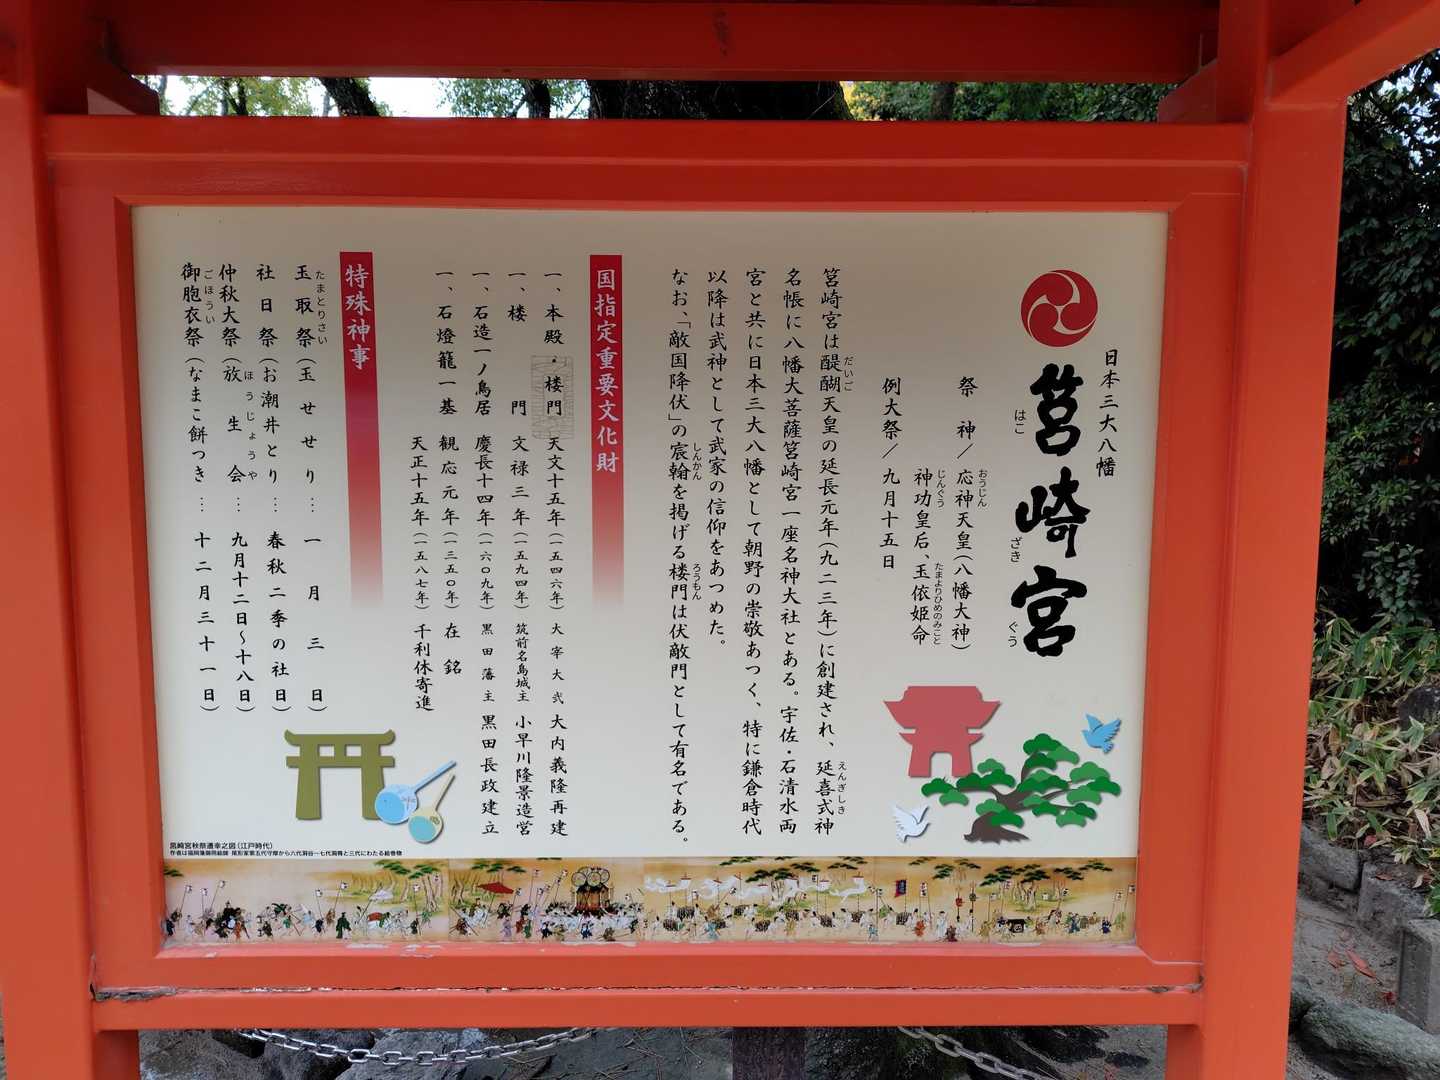 日本三大八幡
筥崎宮
はこざきぐう
祭神/応神天皇(八幡大神)
おうじん
神功皇后、玉依姫命
じんぐう たまよりひめのみこと
例大祭/九月十五日
筥崎宮は醍醐天皇の延長元年(九二三年)に創建され、延喜式神
だいご えんぎしき
名帳に八幡大菩薩筥崎宮一座名神大社とある。宇佐・石清水両
宮と共に日本三大八幡として朝野の崇敬あつく、特に鎌倉時代
以降は武神として武家の信仰をあつめた。
なお、「敵国降伏」の宸翰を掲げる楼門は伏敵門として有名である。
しんかん ろうもん
国指定重要文化財
一、本殿・楼門 天文十五年(一五四六年) 大宰大弐 大内義隆再建
一、楼門 文禄三年(一五九四年) 筑前名島城主 小早川隆景造営
一、石造一ノ鳥居 慶長十四年(一六〇九年) 黒田藩主 黒田長政建立
一、石燈籠一基 観応元年(一三五〇年) 在銘
天正十五年(一五八七年) 千利休寄進
特殊神事
玉取祭(玉せせり…一月三日)
たまとりさい
社日祭(お潮井とり…春秋二季の社日)
仲秋大祭(放生会…九月十二日〜十八日)
ほうじょうや
御胞衣祭(なまこ餅つき…十二月三十一日)
ごほうい
筥崎宮秋祭遷幸之図(江戸時代)